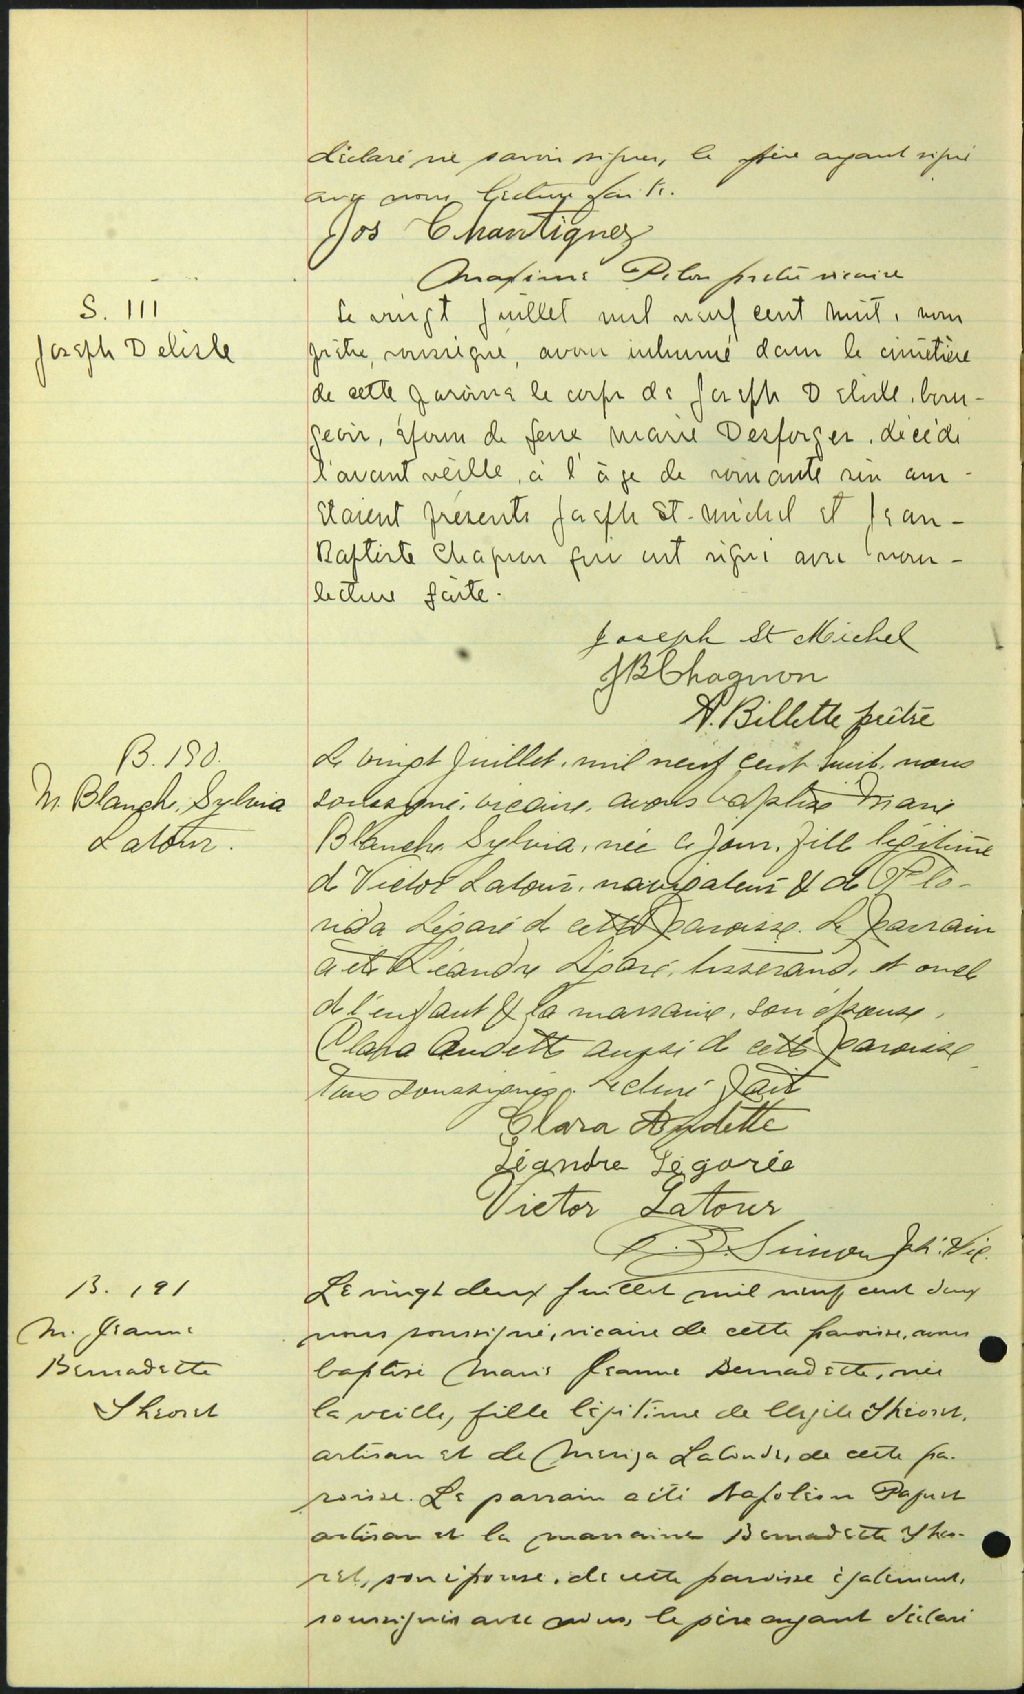 déclaré ne savoir signer, le père ayant signé
avec nous lecture faite.
Jos Chantignez
Maxime Pilon prêtre vicaire
S. 111
Joseph Delisle
Le vingt Juillet mil neuf cent huit, nous
prêtre, soussigné, avons inhumé dans le cimetière
de cette paroisse le corps de Joseph Delisle, bour-
geois, époux de feue Marie Desforges, décédé
l'avant veille, à l'âge de soixante six ans -
Étaient présents Joseph St-Michel et Jean-
Baptiste Chagnon qui ont signé avec nous -
lecture faite.
Joseph St Michel
JB Chagnon
A. Billette prêtre
B. 190.
M. Blanche, Sylvia
Latour.
Le vingt Juillet, mil neuf cent huit, nous
soussigné, vicaire, avons baptisé Marie
Blanche Sylvia, née ce jour, fille légitime
de Victor Latour, navigateur & de Flo-
rida Légaré de cette paroisse. Le parrain
a été Léandre Légaré, tisserand, et oncle
de l'enfant & la marraine, son épouse,
Clara Audette aussi de cette paroisse
tous soussignés. Lecture fait
Clara Audette
Léandre Légarée
Victor Latour
Simon Ptr. Vic.
B. 191
M. Jeanne
Bernadette
Théoret
Le vingt deux juillet mil neuf cent
nous soussigné, vicaire de cette paroisse, avons
baptisé Marie Jeanne Bernadette, née
la veille, fille légitime de Théoret,
artisan et de Lalonde, de cette pa-
roisse. Le parrain a été Napoléon Paquet
artisan et la marraine Bernadette Théo-
ret, son épouse, de cette paroisse également,
soussignés avec nous, le père ayant déclaré